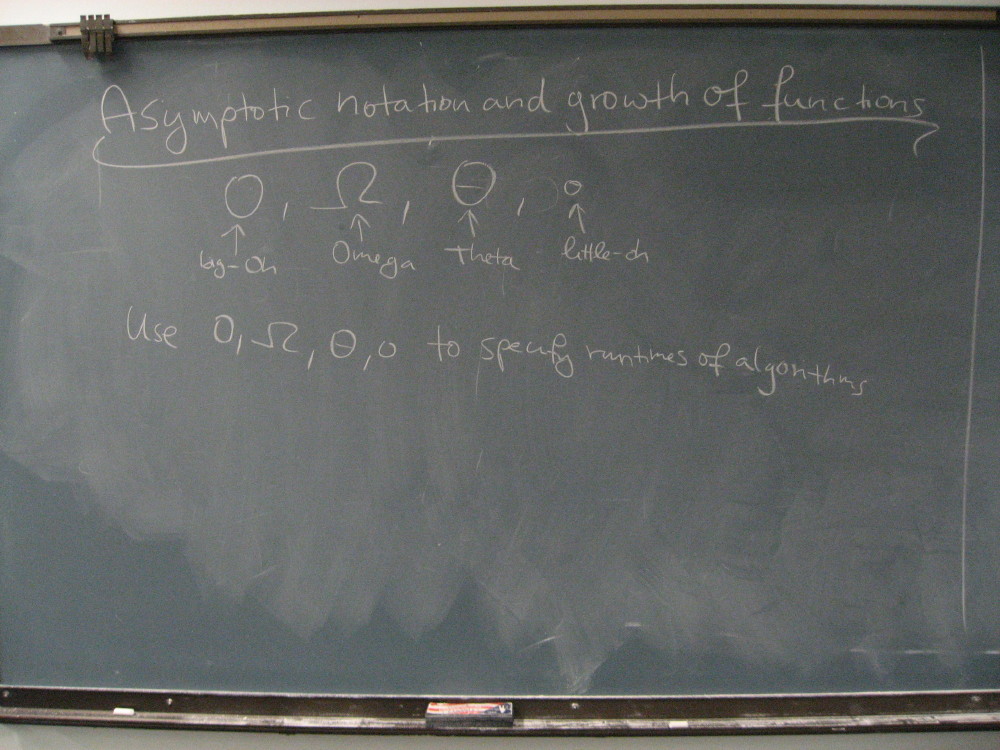 Asymptotic notation and growth of functions
O, Ω, Θ, o
big-Oh Omega Theta little-oh
Use O, Ω, Θ, o to specify runtimes of algorithms